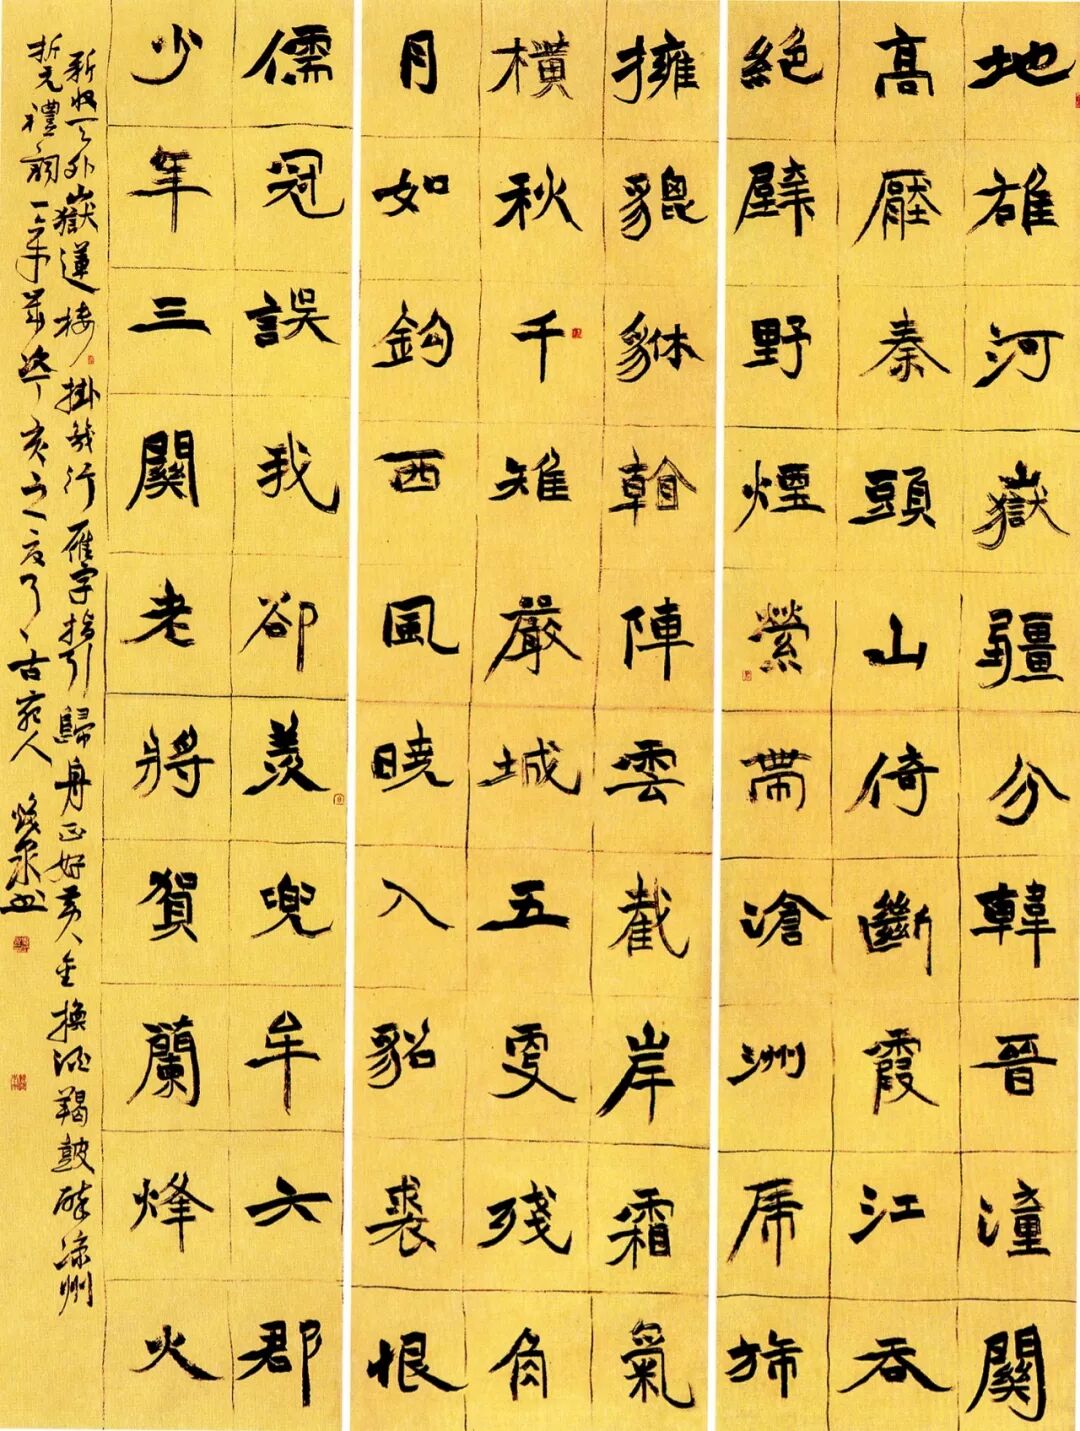 地雄河嶽疆分韓晉潼關
高壓秦頭山倚斷霞江吞
絕壁野煙縈帶滄洲虎旆
擁貔貅看陣雲截岸霜氣
橫秋千雉嚴城五更殘角
月如鈎西風曉入貂裘恨
儒冠誤我卻羨兜牟六郡
少年三關老將賀蘭烽火
新收天外嶽蓮樓掛幾行雁字指引歸舟正好黃金換酒羯鼓醉涼州
折元禮詞一章歲丁亥之夏月古宛人